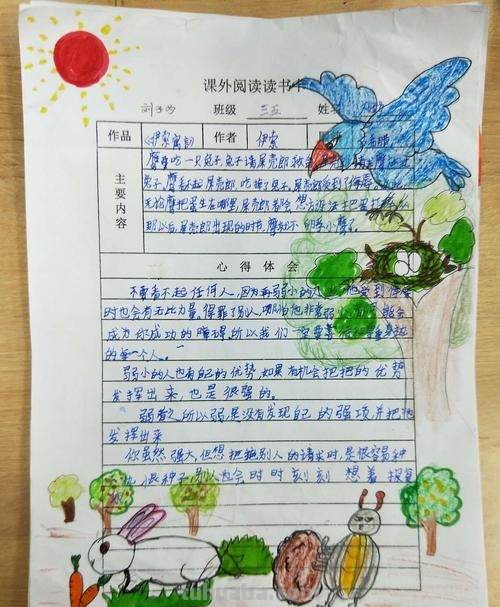 课外阅读读书卡
班级 三五 姓名
作品 《伊索寓言》 作者 伊索
主要内容
鹰要吃一只兔子,兔子请屎壳郎救
兔子,鹰看不起屎壳郎,吃掉了兔子,屎壳郎受到了侮辱
无论鹰把蛋生在哪里,屎壳郎都会想方设法把蛋打
那以后,屎壳郎出现的时节,鹰就不孵小鹰了。
心得体会
不要看不起任何人,因为再弱小的人 他受到侮辱
时也会有无比力量,得罪了别人,哪怕他非常弱小 能会
成为你成功的障碍,所以我们一定要善 身边
的每一个人。
弱小的人也有自己的优势,如果有机会把把的优势
发挥出来,也是很强的。
弱者之所以弱是没有发现自己的强项,并把他
发挥出来
你虽然强大但想把拒别人的请求时,是很容易种
恨种子,别人也会时时刻刻想着报复
tukuaba.com